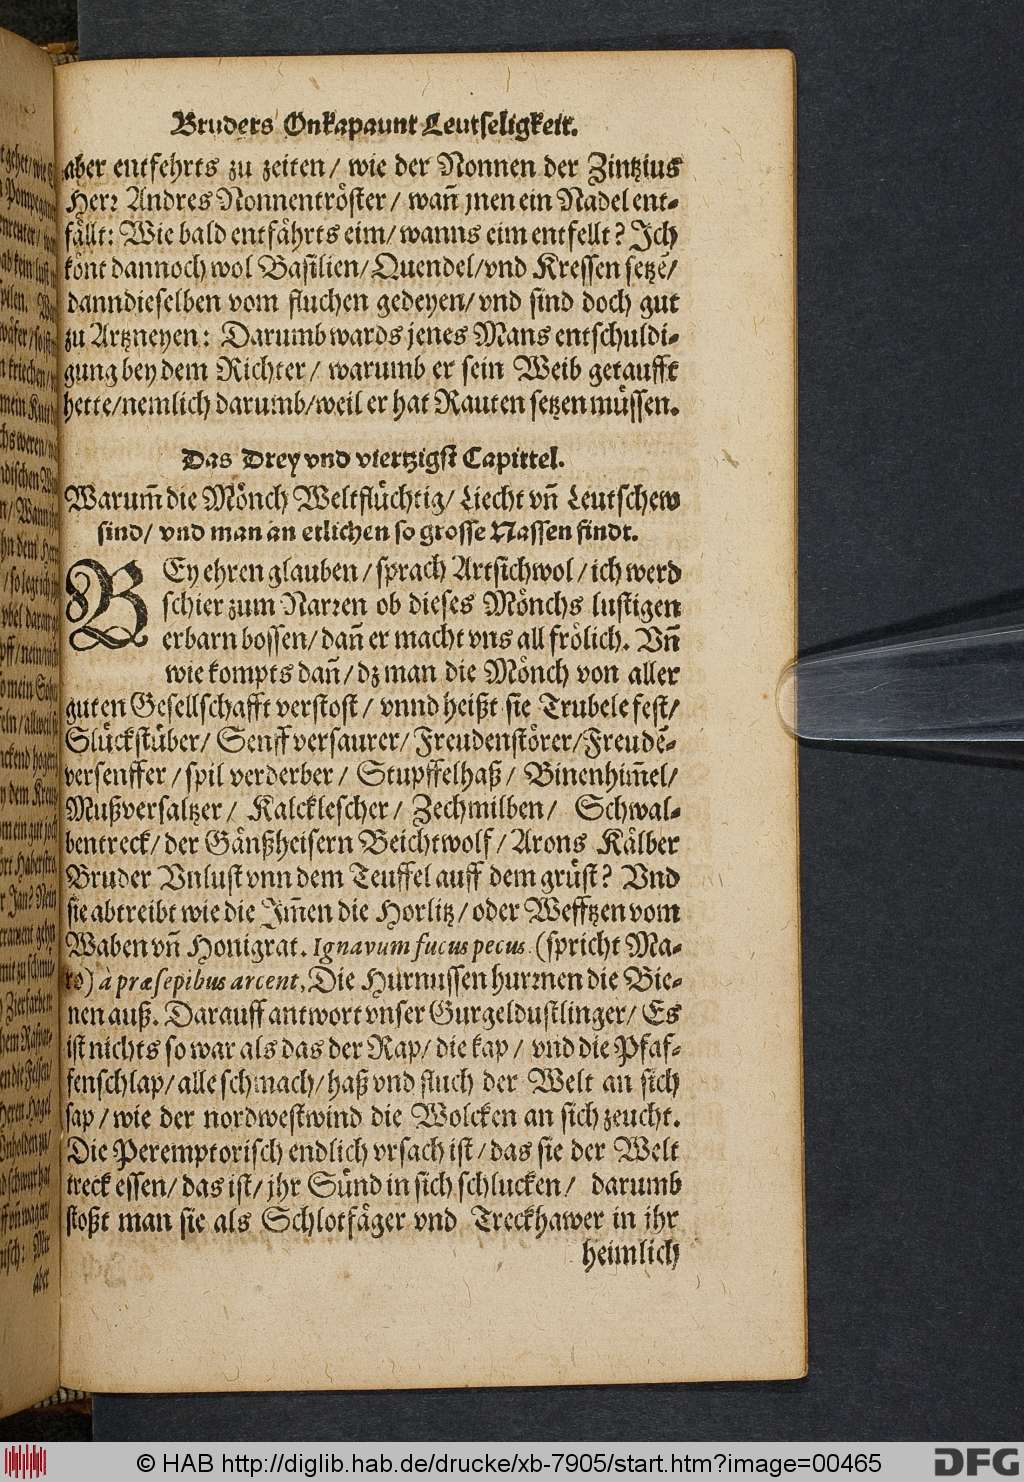 Bruders Onkapaunt Leutseligkeit.
aber entfehrts zu zeiten / wie der Nonnen der Zintzius
Herꝛ Andres Nonnentröster / wañ jnen ein Nadel ent-
fällt: Wie bald entfährts eim / wanns eim entfellt? Ich
könt dannoch wol Basilien / Quendel / vnd Kressen setzẽ /
danndieselben vom fluchen gedeyen / vnd sind doch gut
zu Artzneyen: Darumb wards jenes Mans entschuldi-
gung bey dem Richter / warumb er sein Weib getaufft
hette / nemlich darumb / weil er hat Rauten setzen müssen.
Das Drey vnd viertzigst Capittel.
Warum̃ die Mönch Weltflüchtig / Liecht vñ Leutschew
sind / vnd man an etlichen so grosse Nassen findt.
BEy ehren glauben / sprach Artsichwol / ich werd
schier zum Narꝛen ob dieses Mönchs lustigen
erbarn bossen / dañ er macht vns all frölich. Vñ
wie kompts dañ / dz man die Mönch von aller
guten Gesellschafft verstost / vnnd heißt sie Trubelefest /
Glückstüber / Senffversaurer / Freudenstörer / Freudẽ-
versenffer / spil verderber / Stupffelhaß / Binenhim̃el /
Mußversaltzer / Kalcklescher / Zechmilben / Schwal-
bentreck / der Gänßheisern Beichtwolf / Arons Kälber
Bruder Vnlust vnn dem Teuffel auff dem grüst? Vnd
sie abtreibt wie die Im̃en die Horlitz / oder Wefftzen vom
Waben vñ Honigrat. Ignavum fucus pecus. (spricht Ma-
ro) à præsepibus arcent, Die Hurnussen hurꝛnen die Bie-
nen auß. Darauff antwort vnser Gurgeldustlinger / Es
ist nichts so war als das der Rap / die kap / vnd die Pfaf-
fenschlap / alle schmach / haß vnd fluch der Welt an sich
sap / wie der nordwestwind die Wolcken an sich zeucht.
Die Peremptorisch endlich vrsach ist / das sie der Welt
treck essen / das ist / jhr Sünd in sich schlucken / darumb
stoßt man sie als Schlotfäger vnd Treckhawer in jhr
heimlich
© HAB http://diglib.hab.de/drucke/xb-7905/start.htm?image=00465
DFG